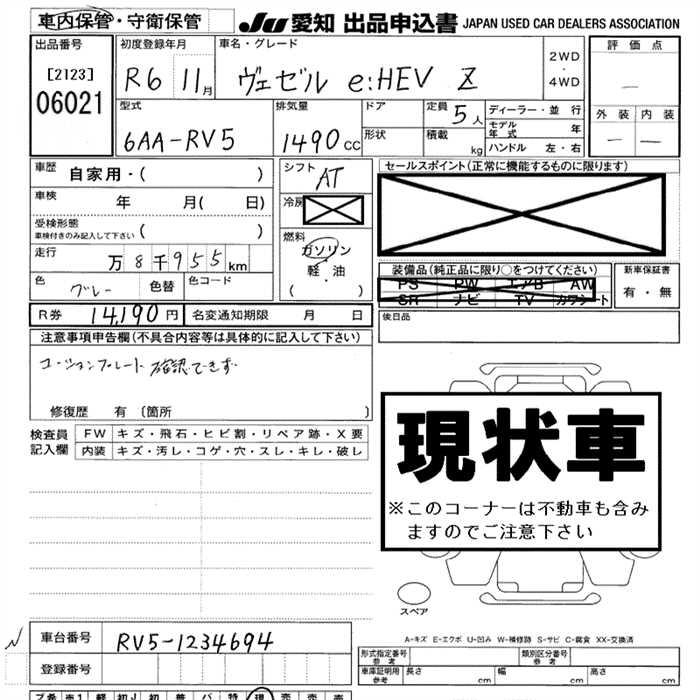 車内保管・守衛保管 JU 愛知 出品申込書 JAPAN USED CAR DEALERS ASSOCIATION
出品番号 初度登録年月 車名・グレード 評価点
[2123] R6 11月 ヴェゼル e:HEV Z 2WD・4WD —
06021
型式 排気量 ドア 定員 5人 ディーラー・並行 外装 内装
6AA-RV5 1490cc 形状 積載 kg モデル年式 年 — —
ハンドル 左・右
車歴 自家用・( ) シフト AT セールスポイント(正常に機能するものに限ります)
車検 年( 月 日) 冷房
受検形態 車検付きのみ記入して下さい ( )
走行 万8千955km 燃料 ガソリン 軽・油 ( ・ )
装備品(純正品に限り○をつけてください) 新車保証書
PS PW エアB AW 有・無
SR ナビ TV カワシート
色 グレー 色替 色コード
後日品
R券 14,190円 名変通知期限 月 日
注意事項申告欄(不具合内容等は具体的に記入して下さい)
コーションプレート確認できず
修復歴 有〔箇所 〕
検査員記入欄 FW キズ・飛石・ヒビ割・リペア跡・X要
内装 キズ・汚レ・コゲ・穴・スレ・キレ・破レ
現状車
※このコーナーは不動車も含み
ますのでご注意下さい
スペア
A-キズ E-エクボ U-凹み W-補修跡 S-サビ C-腐食 XX-交換済
車台番号 RV5-1234694
登録番号
形式指定番号 参考 類別区分番号 参考
車庫証明用 参考 長さ cm 幅 cm 高さ cm